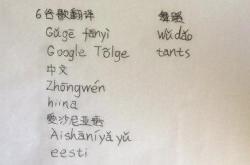 6 谷歌翻译
Gǔgē fānyì
Google Tõlge
中文
Zhōngwén
hiina
愛沙尼亚語
Aìshāníyǎ yǔ
eesti
舞蹈
wǔdǎo
tants